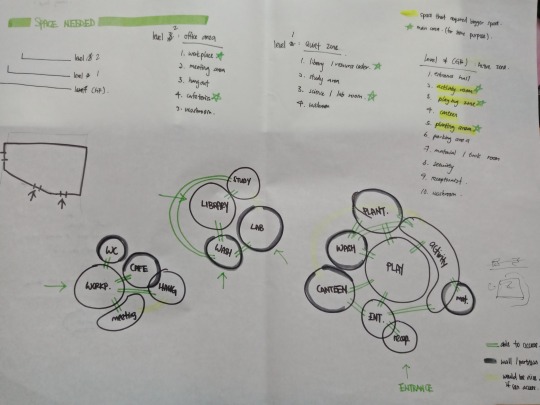 SPACE NEEDED
level 2 : office area
1. workplace
2. meeting area
3. hang out
4. cafeteria
5. washroom
level 1 : Quiet zone
1. library / resource center
2. study area
3. science / lab room
4. washroom
space that required bigger space.
main area (for some purpose).
level G (GH) : noise zone
1. entrance hall
2. activity room
3. playing zone
4. canteen
5. planting area
6. parking area
7. material / tools room
8. security
9. receptionist
10. washroom
level 2
level 1
level (GH)
STUDY
LIBRARY
LAB
WASH
WC
CAFE
WORKP.
HANG
meeting
PLANT.
WASH
PLAY
activity
CANTEEN
mat.
ENT.
recep.
ENTRANCE
able to access
wall / partition
would be nice
if can access